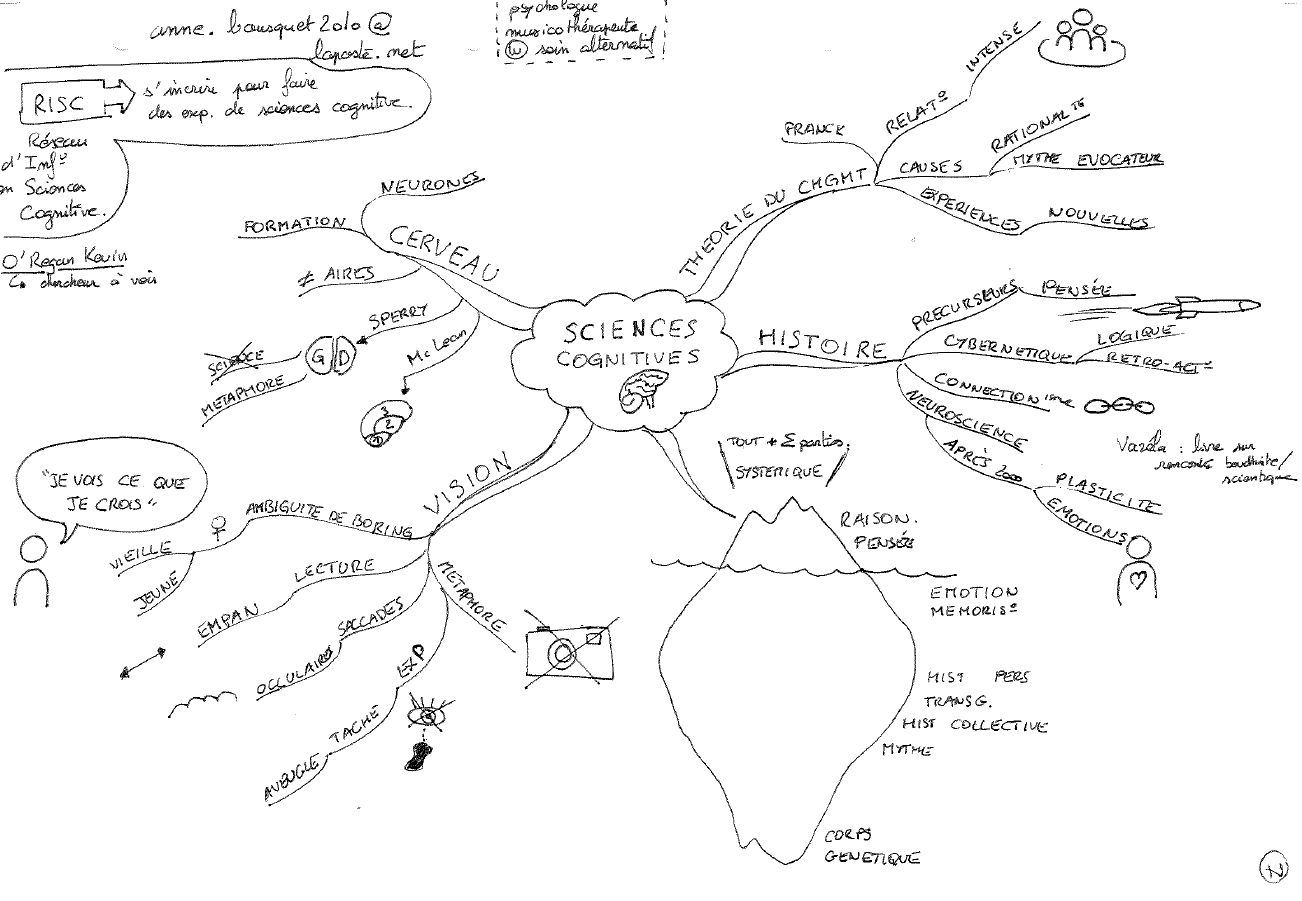 anne.bousquet2010@
laposte.net
psychologue
musicothérapeute
soin alternatif
RISC
s'incrire pour faire
des exp. de sciences cognitive.
Réseau
d'Infº
en Sciences
Cognitive.
O'Regan Kevin
chercheur à voir
SCIENCES
COGNITIVES
THEORIE DU CHGMT
FRANCK
RELATº
INTENSE
CAUSES
RATIONALITE
MYTHE EVOCATEUR
EXPERIENCES
NOUVELLES
HISTOIRE
PRECURSEURS
PENSÉE
CYBERNETIQUE
LOGIQUE
RETRO-ACTº
CONNECTIONisme
NEUROSCIENCE
APRÈS 2000
PLASTICITE
EMOTIONS
Varéla : livre sur
rencontre bouddhiste/
scientifique
TOUT ≠ Σ parties.
SYSTEMIQUE
RAISON.
PENSÉE
EMOTION
MEMORISº
HIST PERS
TRANSG.
HIST COLLECTIVE
MYTHE
CORPS
GENETIQUE
VISION
METAPHORE
EXP
TACHE
AVEUGLE
SACCADES
OCCULAIRES
LECTURE
EMPAN
AMBIGUITE DE BORING
VIEILLE
JEUNE
"JE VOIS CE QUE
JE CROIS"
CERVEAU
NEURONES
FORMATION
≠ AIRES
SPERRY
G D
SCIENCE
METAPHORE
Mc Lean
3
2
1
N